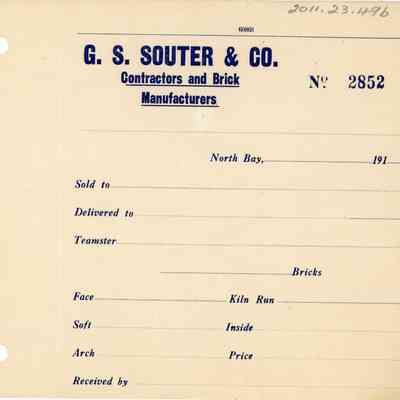 2011.23.496
G. S. SOUTER & CO.
Contractors and Brick
Manufacturers
Nº 2852
North Bay, 191
Sold to
Delivered to
Teamster
Bricks
Face Kiln Run
Soft Inside
Arch Price
Received by